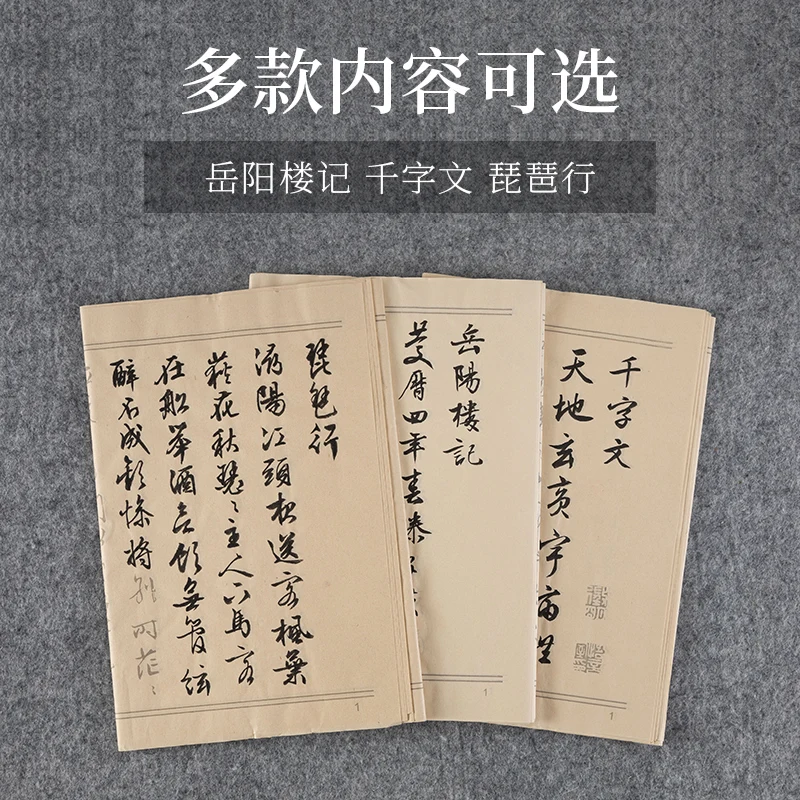 多款内容可选
岳阳楼记 千字文 琵琶行
琵琶行
潯陽江頭夜送客楓葉
荻花秋瑟〻主人下馬客
在船舉酒欲飲無管絃
醉不成歡慘將別時茫〻
1
岳陽樓記
慶曆四年春滕
1
千字文
天地玄黃宇宙
1